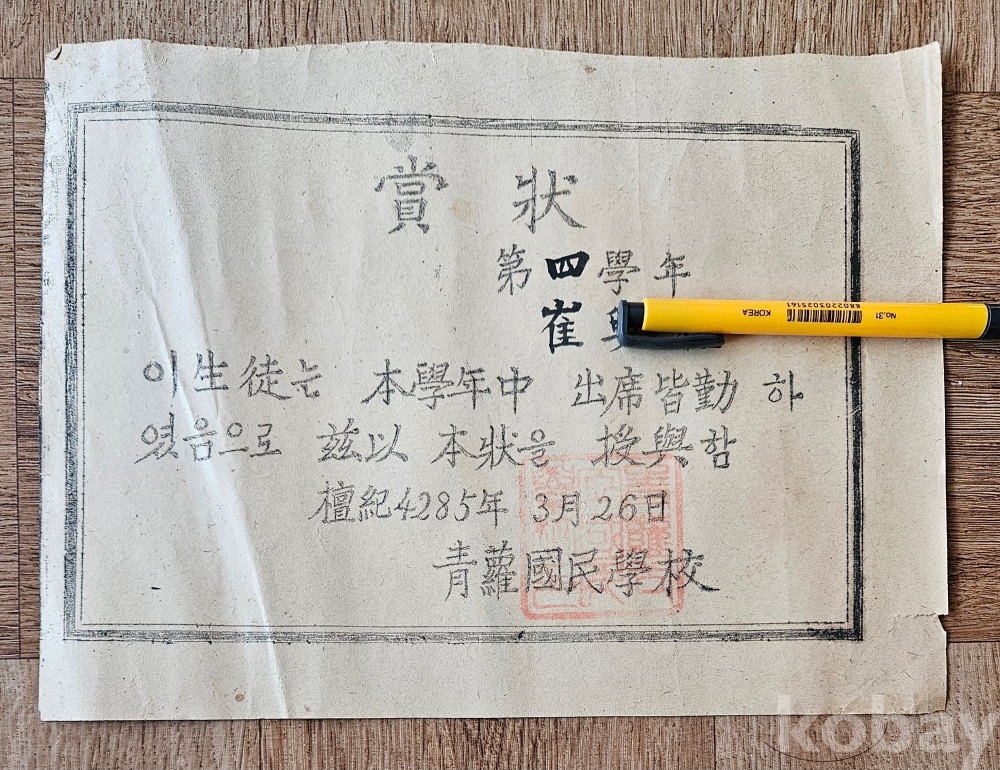 賞狀
第四學年
崔
이生徒는 本學年中 出席皆勤 하
였음으로 玆以 本狀을 授與함
檀紀4285年 3月26日
青蘿國民學校
No.31 KOREA 8802203025161
kobay